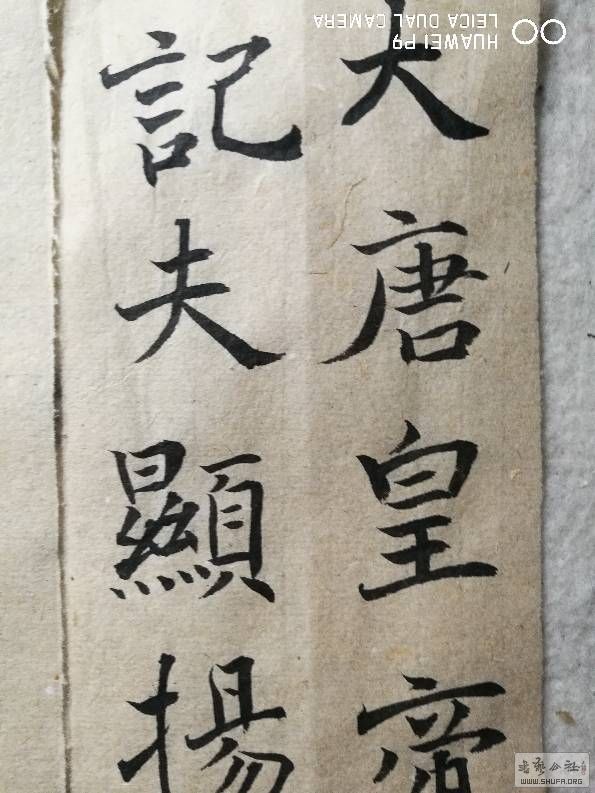 大唐皇帝
記夫顯揚
HUAWEI P9
LEICA DUAL CAMERA
WWW.SHUFA.ORG